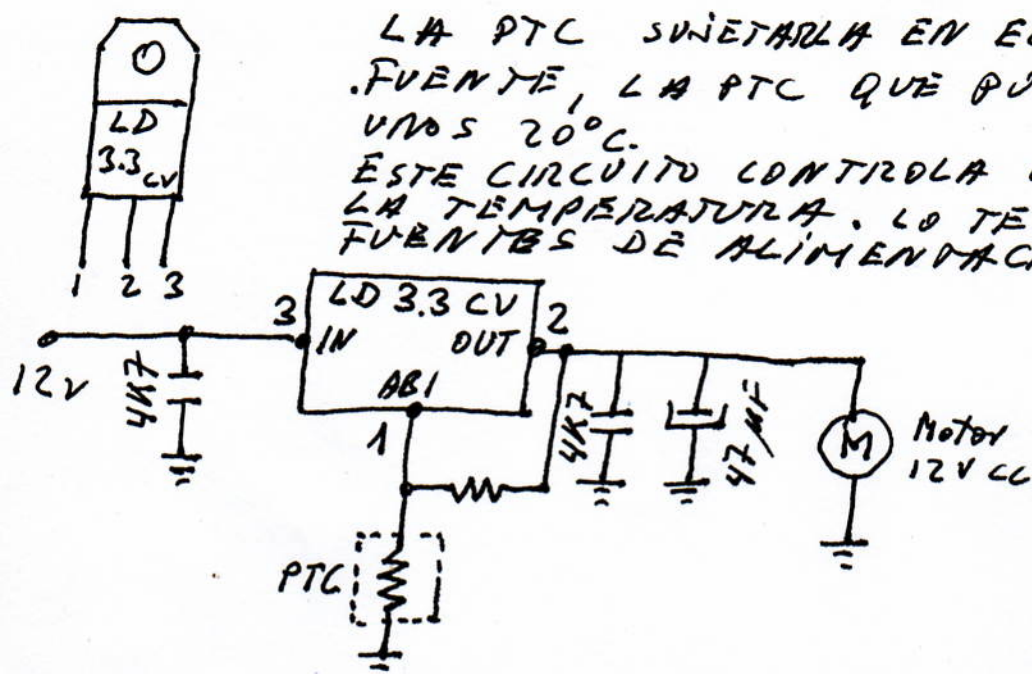 LA PTC SUJETARLA EN E
FUENTE, LA PTC QUE PU
UNOS 20°C.
ESTE CIRCUITO CONTROLA
LA TEMPERATURA. LO TE
FUENTES DE ALIMENTAC
LD
3.3 CV
1 2 3
3 LD 3.3 CV 2
IN OUT
12V
4K7
ABI
1
4K7
47µF
M
Motor
12V CC
PTC